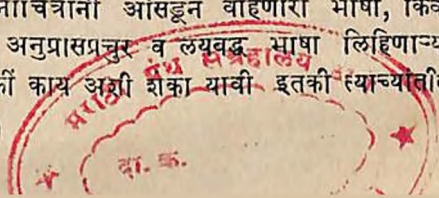 ााचित्रांनी ओसंडून वाहणारी भाषा, किंव
अनुप्रासप्रचुर व लयबद्ध भाषा लिहिणाऱ्य
कीं काय अशी शंका यावी इतकी त्याच्यांती
मराठी ग्रंथ संग्रहालय
दा. क्र.